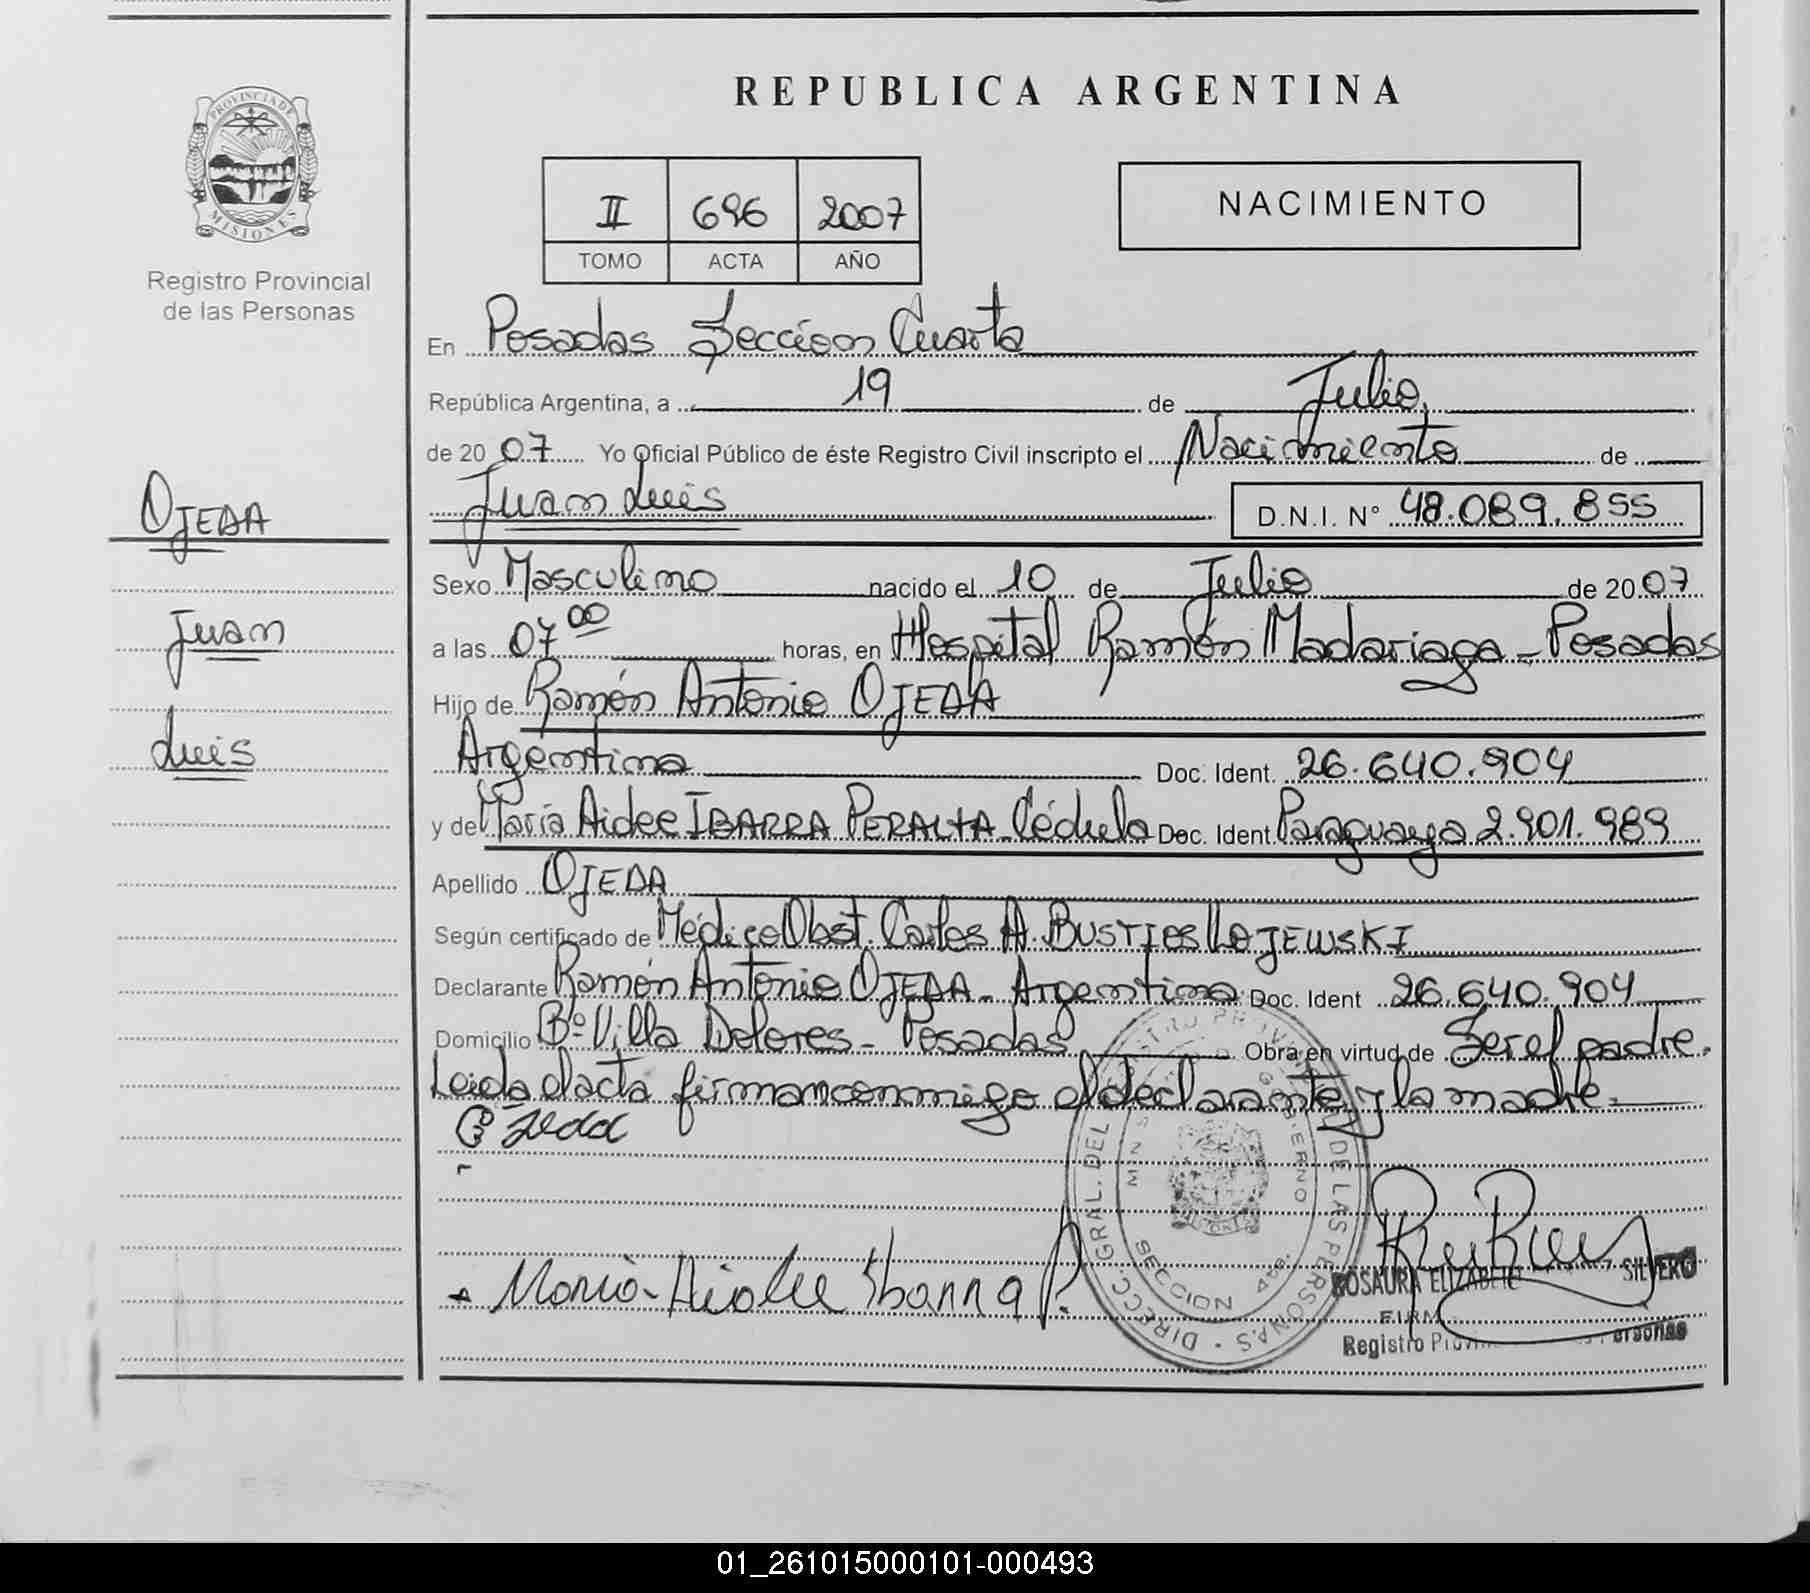 REPUBLICA ARGENTINA
PROVINCIA DE MISIONES
Registro Provincial
de las Personas
II 696 2007
TOMO ACTA AÑO
NACIMIENTO
En Posadas Sección Cuarta
República Argentina, a 19 de Julio
de 2007 Yo Oficial Público de éste Registro Civil inscripto el Nacimiento de
OJEDA
Juan Luis D.N.I. N° 48.089.855
Sexo Masculino nacido el 10 de Julio de 2007
Juan
a las 07 00 horas, en Hospital Ramón Madariaga - Posadas
Hijo de Ramón Antonio OJEDA
Luis
Argentino Doc. Ident. 26.640.904
y de María Aidee IBARRA PERALTA - Cédula Doc. Ident. Paraguaya 2.901.989
Apellido OJEDA
Según certificado de Médico Obst. Carlos A. BUSTIES LOJEWSKI
Declarante Ramón Antonio OJEDA - Argentino Doc. Ident 26.640.904
Domicilio B° Villa Dolores - Posadas Obra en virtud de Ser el padre.
Leida el acta firman conmigo el declarante y la madre.
Ojeda
Maria Aidee Ibarra P.
DIRECC. GRAL. DEL REGISTRO PROVINCIAL DE LAS PERSONAS
GOBIERNO
SECCION 4ta.
ROSAURA ELIZABETH SILVERO
Registro Personas
01_261015000101-000493